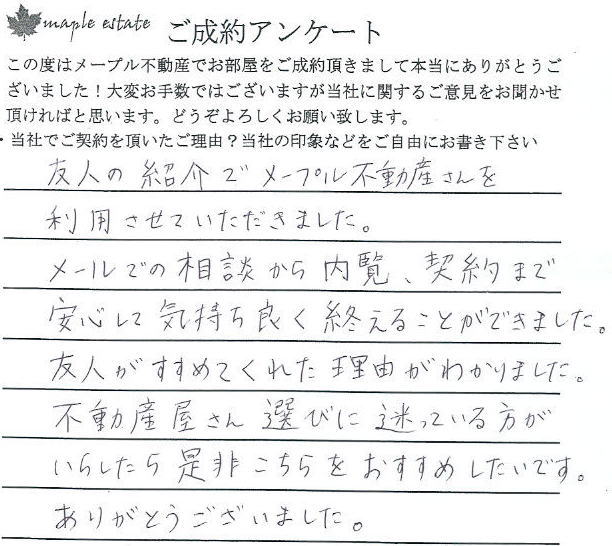 maple estate ご成約アンケート
この度はメープル不動産でお部屋をご成約頂きまして本当にありがとうご
ざいました！大変お手数ではございますが当社に関するご意見をお聞かせ
頂ければと思います。どうぞよろしくお願い致します。
・当社でご契約を頂いたご理由？当社の印象などをご自由にお書き下さい
友人の紹介でメープル不動産さんを
利用させていただきました。
メールでの相談から内覧、契約まで
安心して気持ち良く終えることができました。
友人がすすめてくれた理由がわかりました。
不動産屋さん選びに迷っている方が
いらしたら是非こちらをおすすめしたいです。
ありがとうございました。